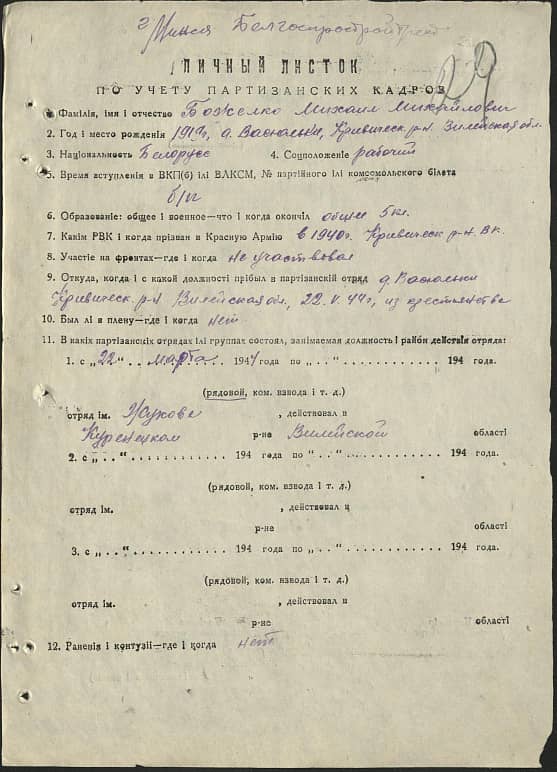 г. Минск Белгоспроектстройтрест
ЛИЧНЫЙ ЛИСТОК
ПО УЧЕТУ ПАРТИЗАНСКИХ КАДРОВ
1. Фамілія, імя і отчество Божелко Михаил Михайлович
2. Год і место рождения 1919г, д. Васюльки, Кривическ. р-н. Вилейская обл.
3. Націіональность Белорусс 4. Соцположеніе рабочий
5. Время вступленія в ВКП(б) ілі ВЛКСМ, № партійного ілі комсомольского білета
б/п
6. Образованіе: общее і военное—что і когда окончіл общее 5 кл.
7. Какім РВК і когда прізван в Красную Армію в 1940г. Кривическ р-н вк.
8. Участіе на фронтах—где і когда не участвовал
9. Откуда, когда і с какой должності прібыл в партізанскій отряд д. Васюльки
Кривическ. р-н Вилейская обл., 22. V. 44г, из крестьянства
10. Был лі в плену—где і когда нет
11. В какіх партізанскіх отрядах ілі группах состоял, занімаемая должность і район действія отряда:
1. с „22“ марта 1944 года по „..“ 194 года.
(рядовой, ком. взвода і т. д.)
отряд ім. Жукова , действовал в
Куренецком р-не Вилейской області
2. с „..“ 194 года по „..“ 194 года.
(рядовой, ком. взвода і т. д.)
отряд ім. , действовал в
р-не області
3. с „..“ 194 года по „..“ 194 года.
(рядовой, ком. взвода і т. д.)
отряд ім. , действовал в
р-не області
12. Раненія і контузіі—где і когда нет